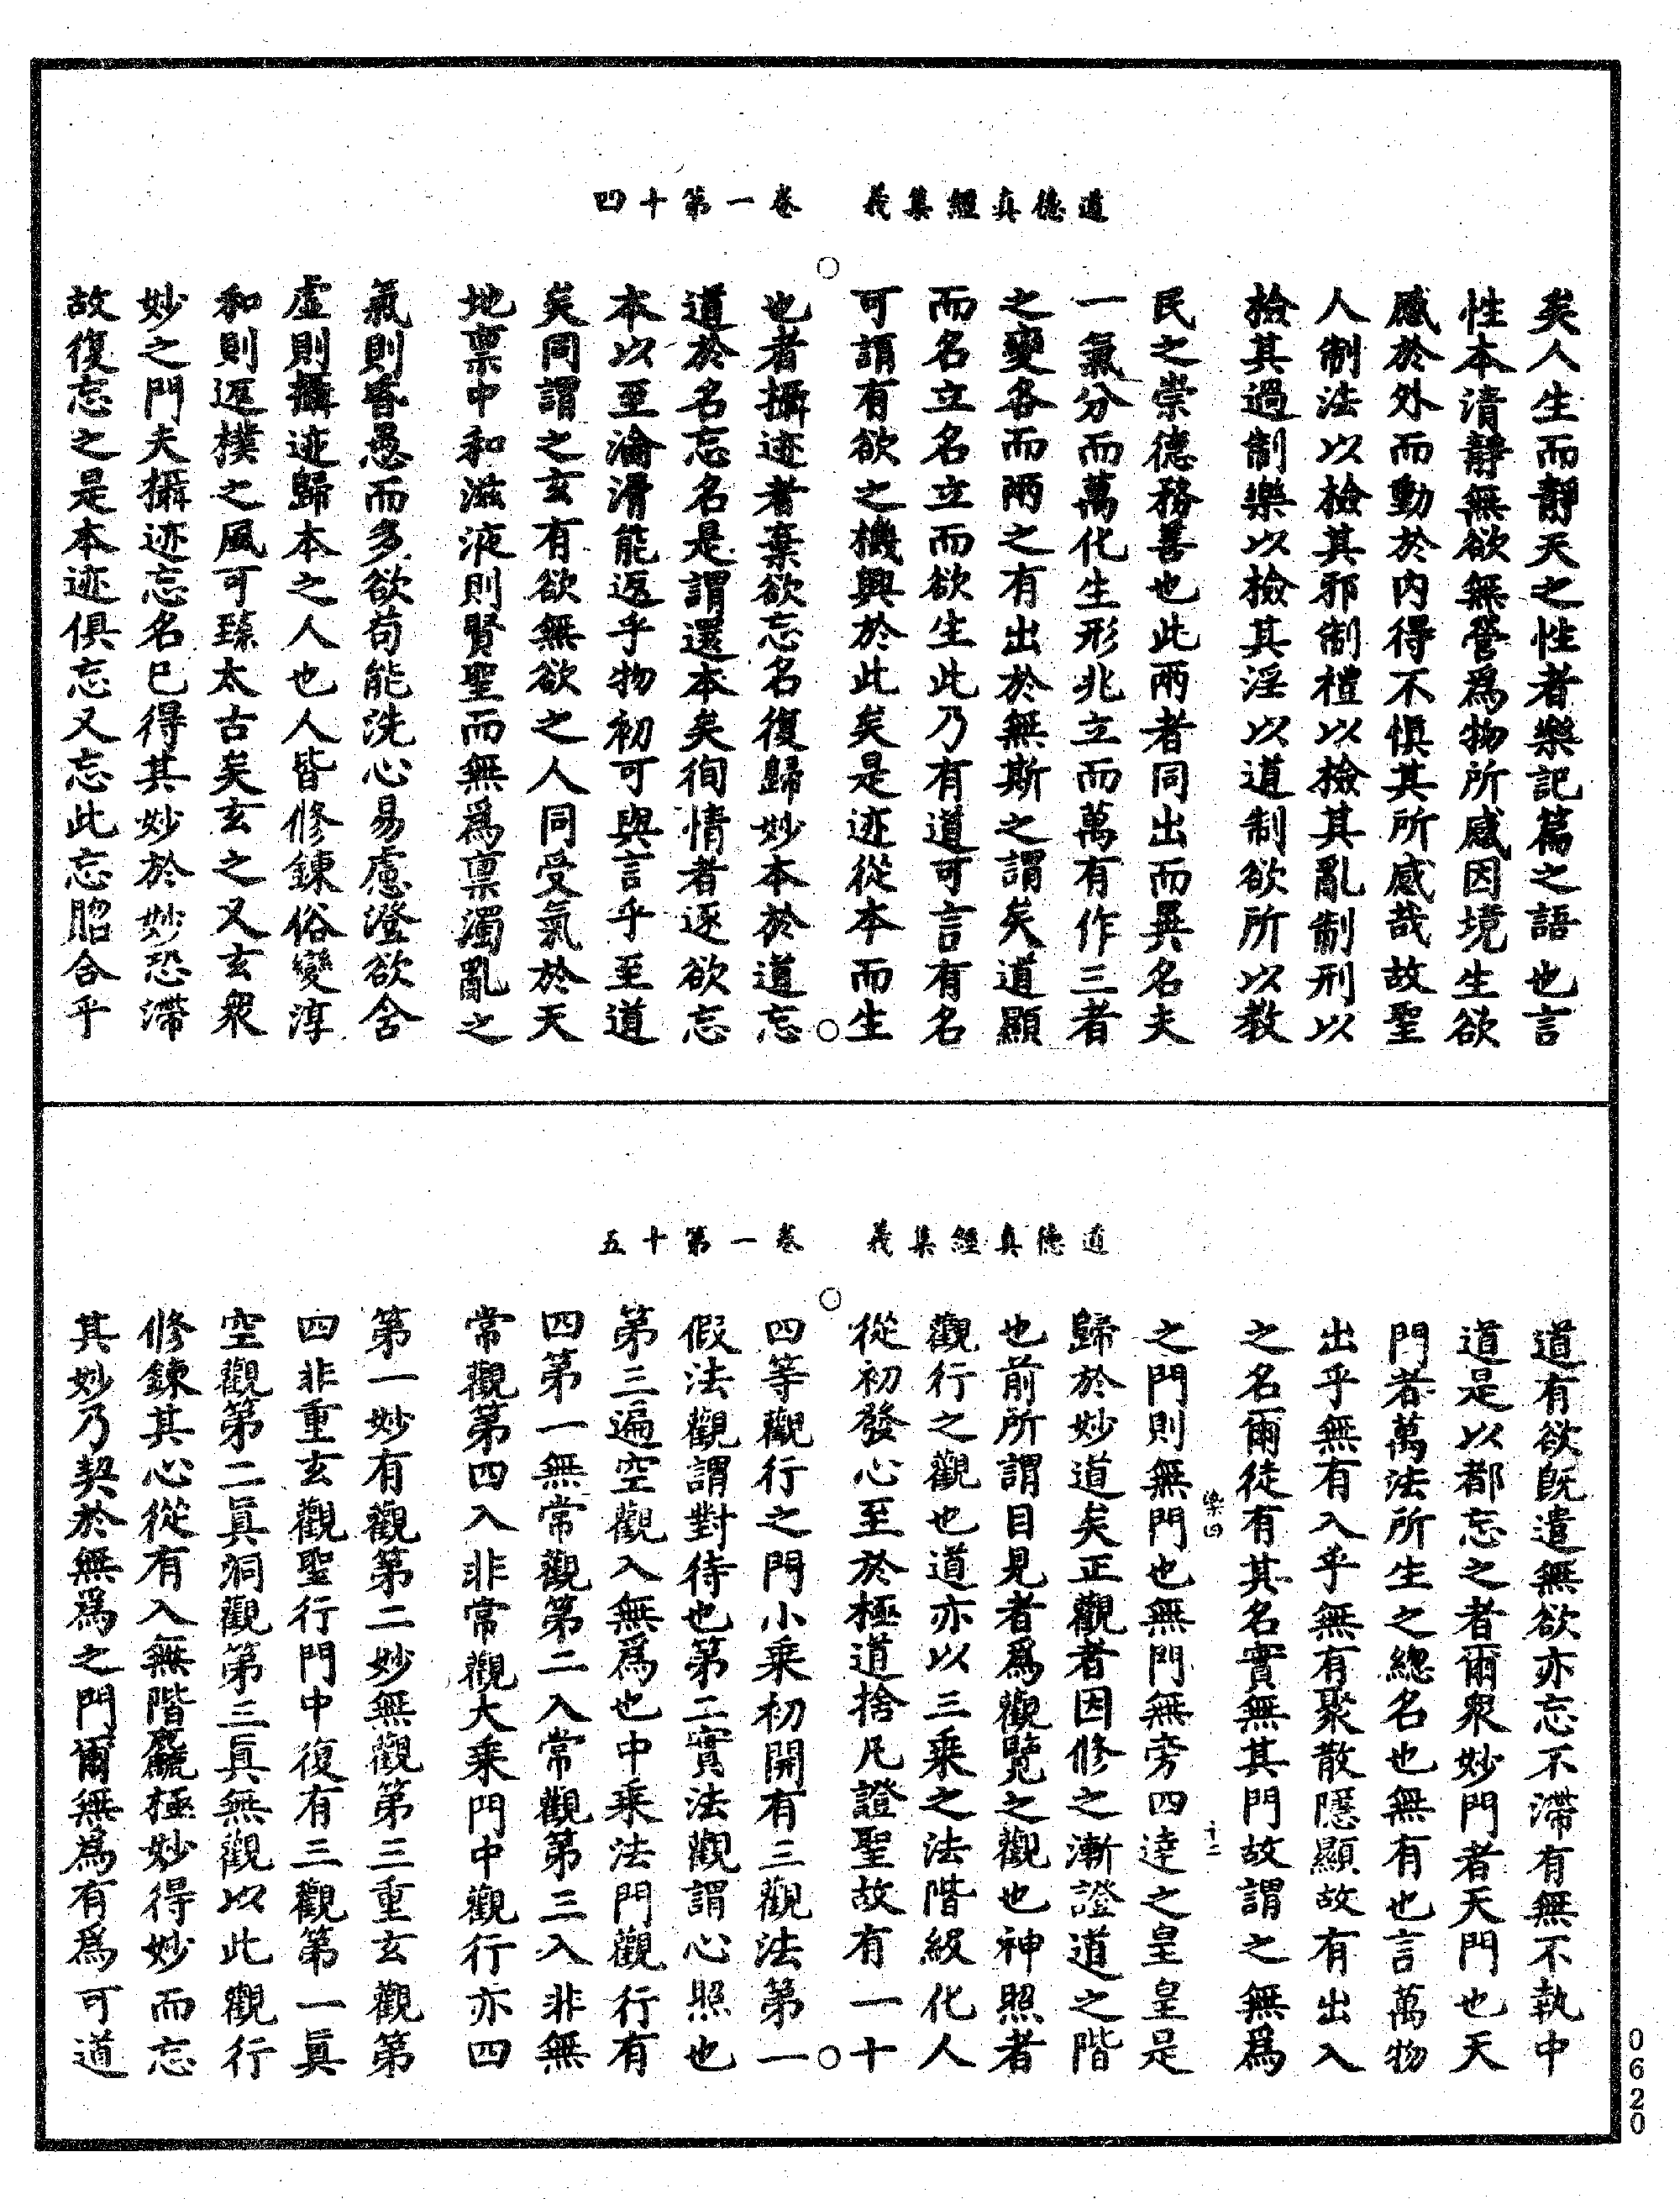 道德真經集義　卷一第十四
矣人生而靜天之性者樂記篇之語也言
性本清靜無欲無營為物所感因境生欲
感於外而動於内得不懼其所感哉故聖
人制法以檢其邪制禮以檢其亂制刑以
檢其過制樂以檢其淫以道制欲所以教
民之崇德務善也此兩者同出而異名夫
一氣分而萬化生形兆立而萬有作三者
之變各而兩之有出於無斯之謂矣道顯
而名立名立而欲生此乃有道可言有名
可謂有欲之機興於此矣是迹從本而生
也者攝迹者棄欲忘名復歸妙本於道忘
道於名忘名是謂還本矣徇情者逐欲忘
本以至淪滑能返乎物初可與言乎至道
矣同謂之玄有欲無欲之人同受氣於天
地稟中和滋液則賢聖而無為稟濁亂之
氣則昏愚而多欲苟能洗心易慮澄欲含
虛則攝迹歸本之人也人皆修鍊俗變淳
和則返樸之風可臻太古矣玄之又玄衆
妙之門夫攝迹忘名已得其妙於妙恐滯
故復忘之是本迹俱忘又忘此忘脗合乎
道德真經集義　卷一第十五
道有欲既遣無欲亦忘不滯有無不執中
道是以都忘之者爾衆妙門者天門也天
門者萬法所生之總名也無有也言萬物
出乎無有入乎無有聚散隱顯故有出入
之名爾徒有其名實無其門故謂之無為
之門則無門也無門無旁四達之皇皇是
染四　十二
歸於妙道矣正觀者因修之漸證道之階
也前所謂目見者為觀覽之觀也神照者
觀行之觀也道亦以三乘之法階級化人
從初發心至於極道捨凡證聖故有一十
四等觀行之門小乘初開有三觀法第一
假法觀謂對待也第二實法觀謂心照也
第三遍空觀入無為也中乘法門觀行有
四第一無常觀第二入常觀第三入非無
常觀第四入非常觀大乘門中觀行亦四
第一妙有觀第二妙無觀第三重玄觀第
四非重玄觀聖行門中復有三觀第一真
空觀第二真洞觀第三真無觀以此觀行
修鍊其心從有入無階麤極妙得妙而忘
其妙乃契於無為之門爾無為有為可道
0620